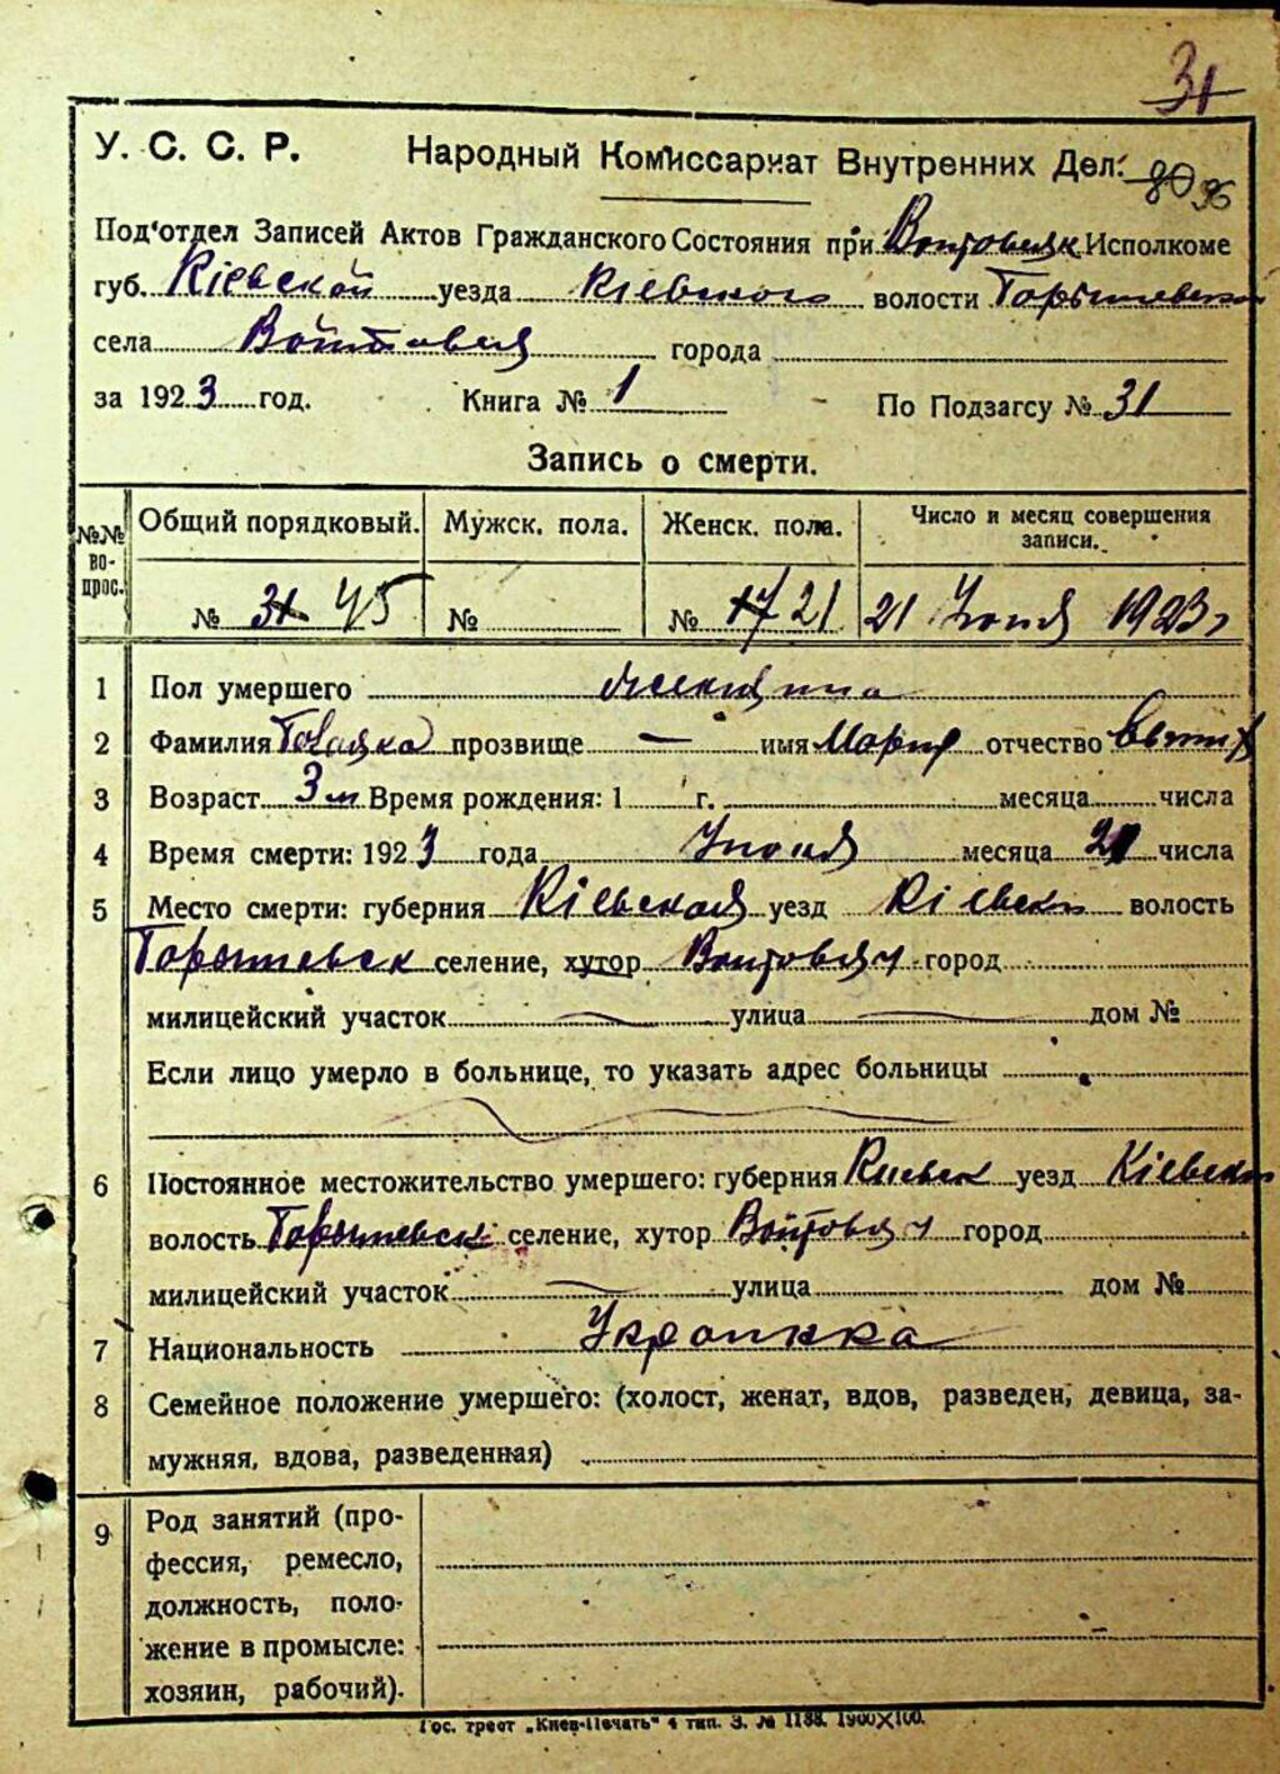 31
У. С. С. Р. Народный Комиссариат Внутренних Дел. 80 96
Под'отдел Записей Актов Гражданского Состояния при Исполкоме
губ. Кіевской уезда Кіевского волости
села города
за 1923 год. Книга № 1 По Подзагсу № 31
Запись о смерти.
№№ во-прос. Общий порядковый. Мужск. пола. Женск. пола. Число и месяц совершения записи.
№ 31 45 № № 17 21 21 Июня 1923 г
1 Пол умершего
2 Фамилия прозвище — имя Мария отчество
3 Возраст 3 м Время рождения: 1 г. месяца числа
4 Время смерти: 1923 года Июня месяца числа
5 Место смерти: губерния Кіевская уезд Кіевск волость
селение, хутор город
милицейский участок улица дом №
Если лицо умерло в больнице, то указать адрес больницы
6 Постоянное местожительство умершего: губерния Киевск уезд Кіевск
волость селение, хутор город
милицейский участок улица дом №
7 Национальность Украинка
8 Семейное положение умершего: (холост, женат, вдов, разведен, девица, за-
мужняя, вдова, разведенная)
9 Род занятий (про-
фессия, ремесло,
должность, поло-
жение в промысле:
хозяин, рабочий).
Гос. трест „Киев-Печать" 4 тип. З. № 1188. 1900X100.